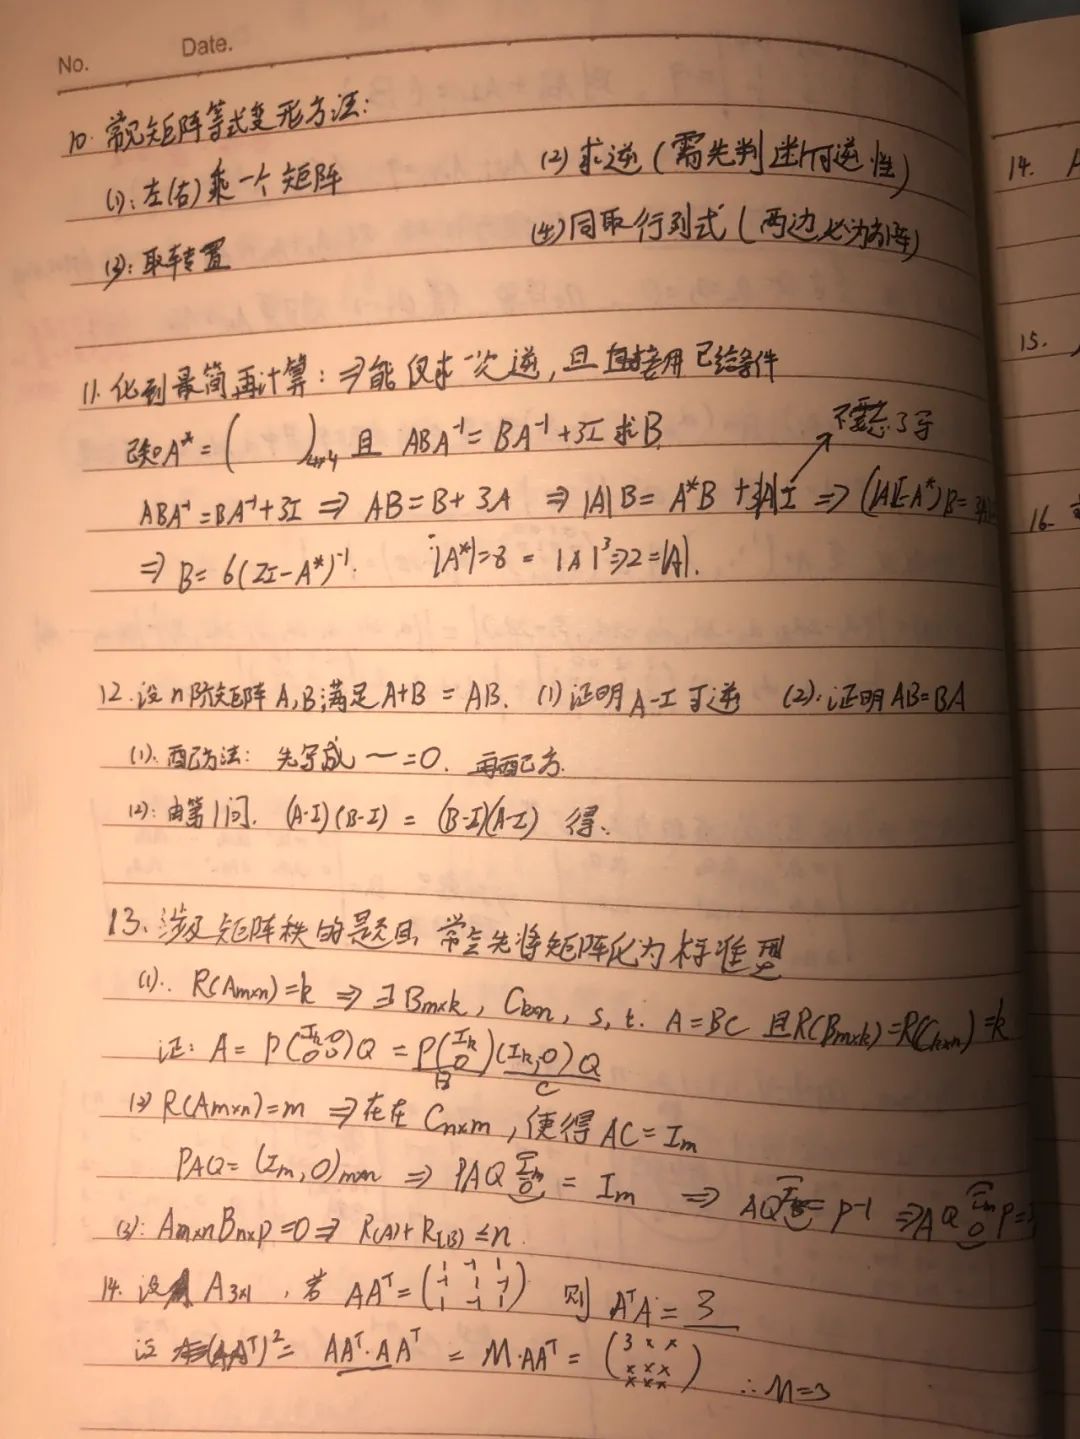 No. Date.
10. 常见矩阵等式变形方法:
(1): 左(右)乘一个矩阵 (2) 求逆 (需先判断可逆性)
(3): 取转置 (4) 同取行列式 (两边必为方阵)
11. 化到最简再计算: ⇒能仅求一次逆, 且直接用已给条件
已知A* = ( )4×4 且 ABA⁻¹ = BA⁻¹+3I 求B 不要忘了写
ABA⁻¹ = BA⁻¹+3I ⇒ AB = B + 3A ⇒ |A|B = A*B + 3|A|I ⇒ (|A|I-A*)B = 3|A|
⇒ B = 6(2I-A*)⁻¹. |A*|=8 = |A|³⇒2=|A|.
12. 设n阶矩阵A,B满足A+B = AB. (1) 证明A-I可逆 (2): 证明AB=BA
(1). 配方法: 先写成 ~=0. 再配方.
(2): 由第1问. (A-I)(B-I) = (B-I)(A-I) 得.
13. 涉及矩阵秩的题目, 常会先将矩阵化为标准型
(1). R(Am×n)=k ⇒ ∃ Bm×k, Ck×n, s,t. A=BC 且R(Bm×k)=R(Ck×n)=k
证: A = P(Ik 0 0 0)Q = P(Ik 0)(Ik,0)Q
B C
(2) R(Am×n)=m ⇒ 存在 Cn×m, 使得 AC=Im
PAQ = (Im,0)m×n ⇒ PAQ(Im 0) = Im ⇒ AQ = P-1 ⇒ AQ(Im 0)P =
(3): Am×nBn×p=0 ⇒ R(A)+R(B) ≤n.
14. 设 A3×1, 若 AAᵀ = (1 -1 1 -1 1 -1 1 -1 1) 则 AᵀA = 3
设 (AAᵀ)² = AAᵀ·AAᵀ = M·AAᵀ = (3 × × × × × × × ×) ∴M=3
14.
15.
16.